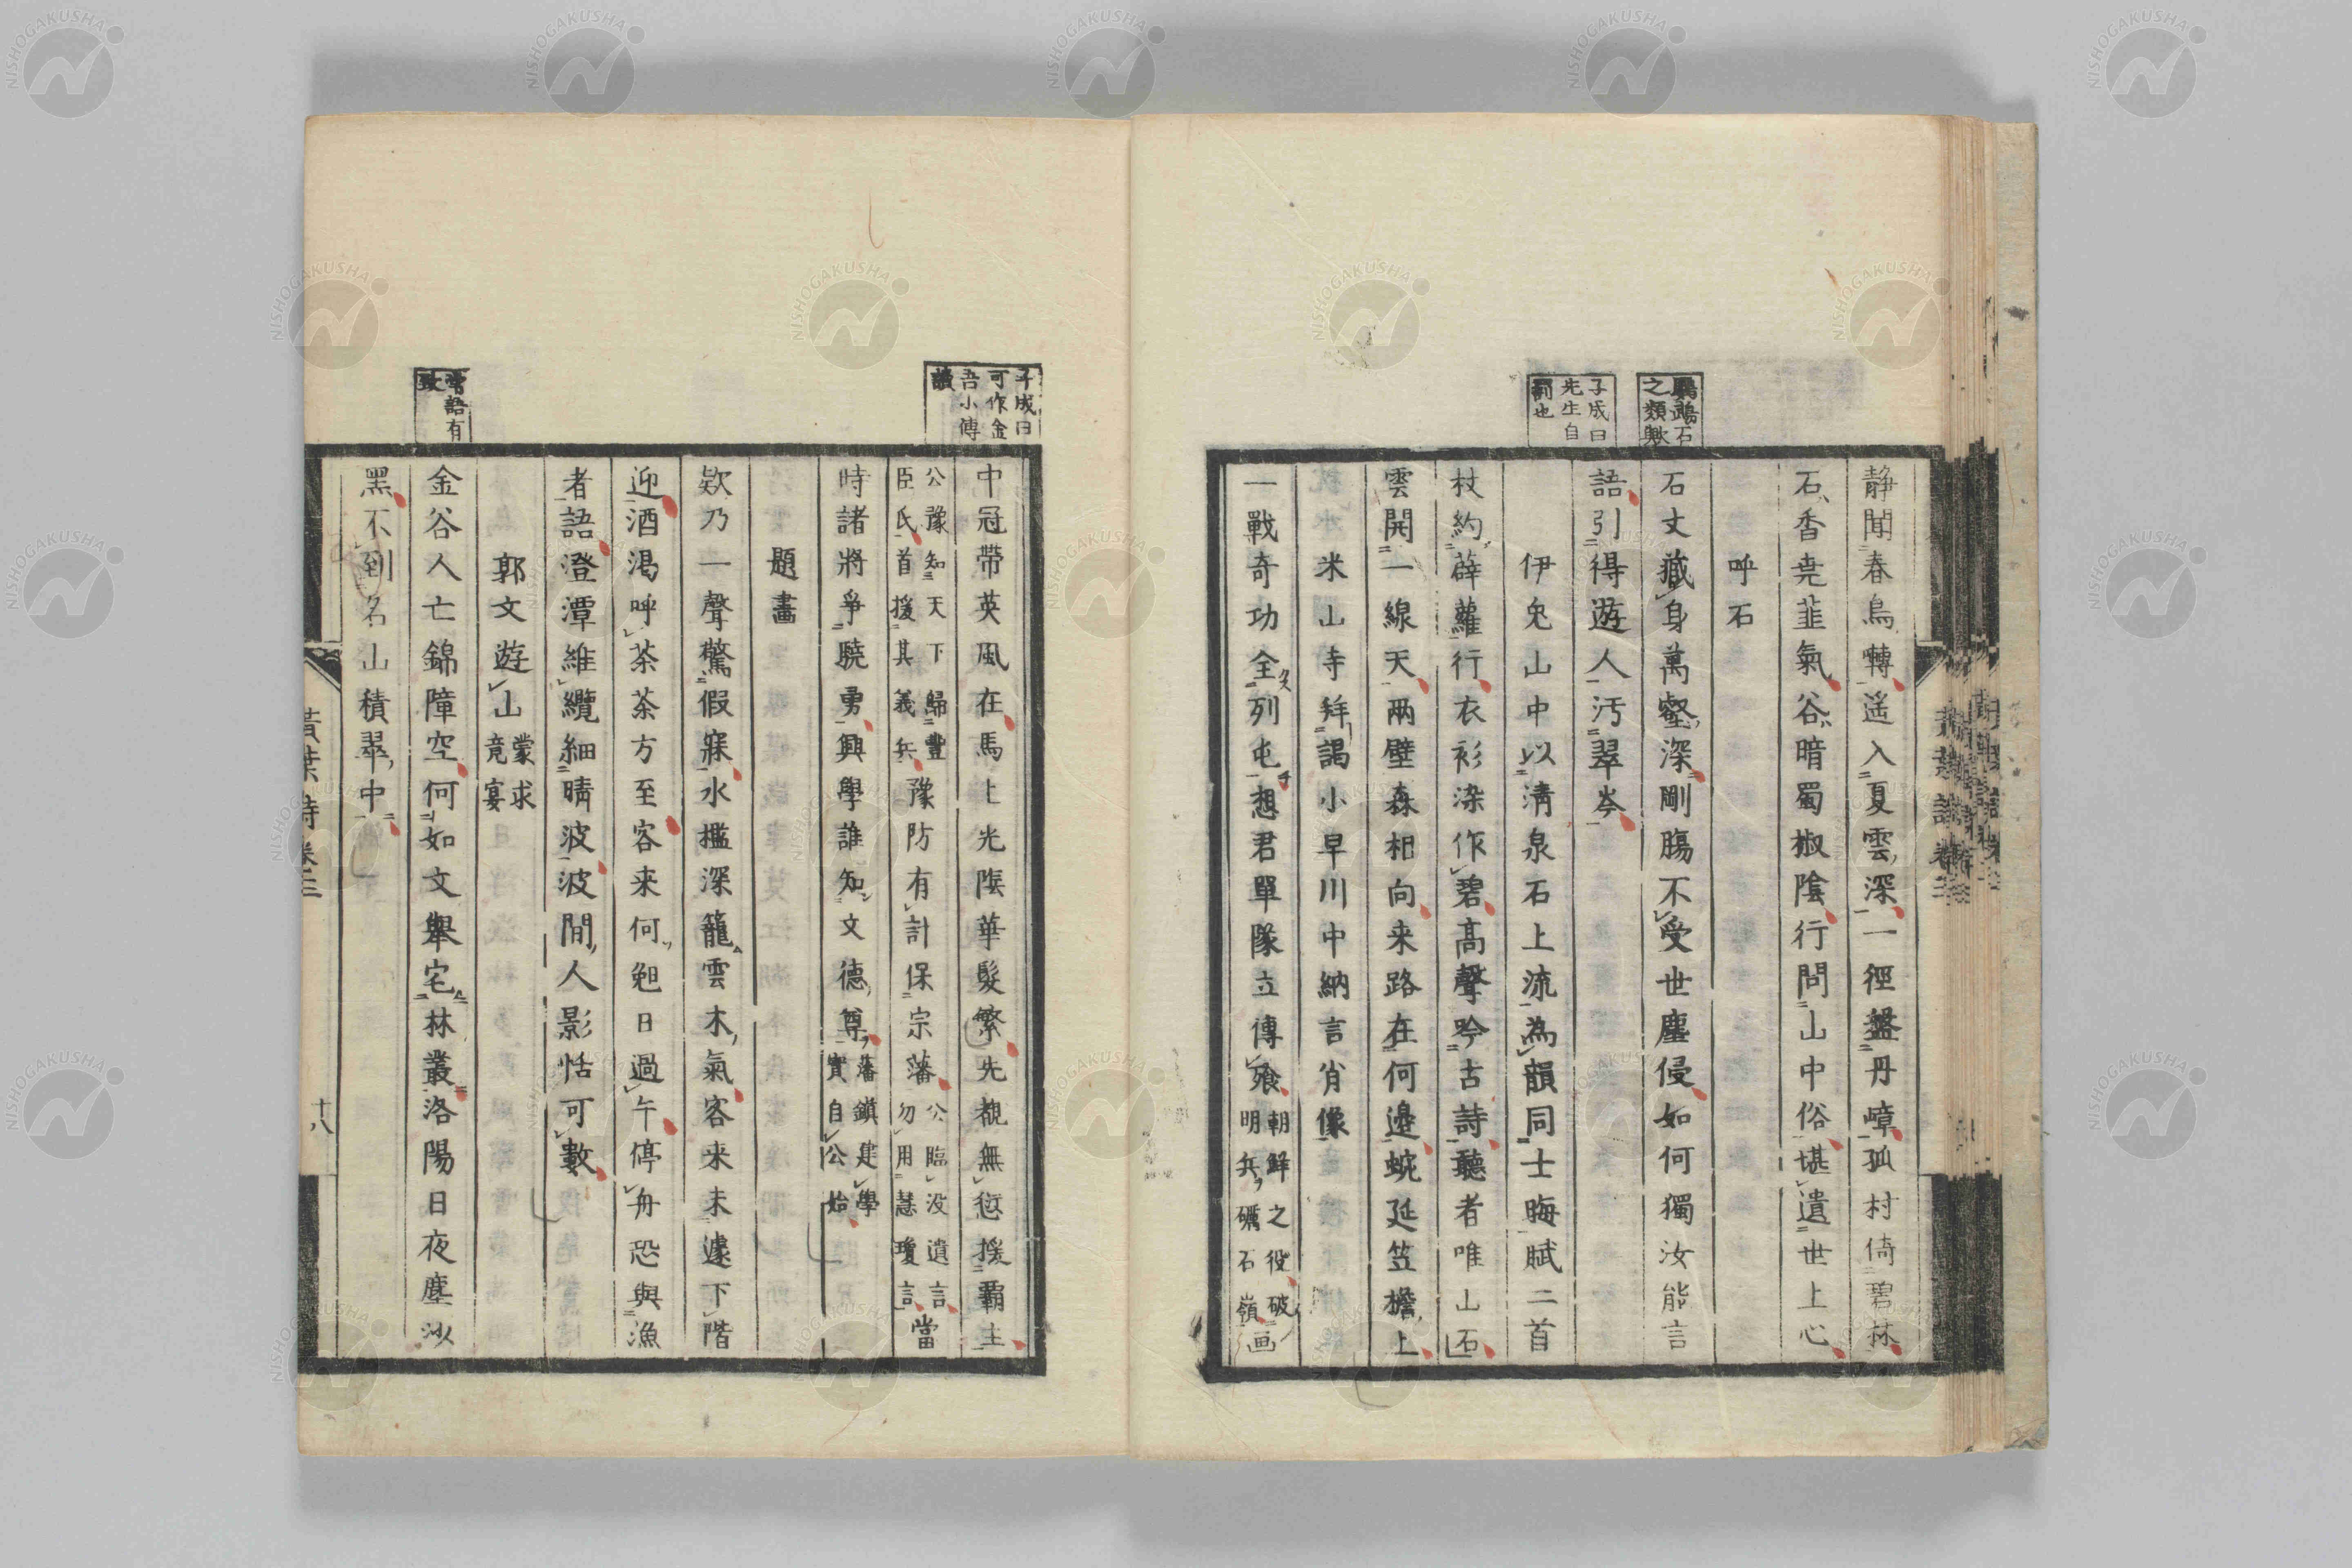 鸚鵡石
之類歟
子成曰
先生自
罰也
静聞春鳥囀遥入夏雲深一徑盤丹嶂孤村倚碧林
石香尭韮氣谷暗蜀椒陰行問山中俗堪遺世上心
呼石
石丈藏身萬壑深剛膓不受世塵侵如何獨汝能言
語引得遊人汚翠岑
伊兒山中以清泉石上流為韻同士晦賦二首
杖約薜蘿行衣衫染作碧高聲吟古詩聽者唯山石
雲開一線天兩壁森相向来路在何邉蜿延笠檐上
米山寺拜謁小早川中納言肖像
一戰奇功全列屯想君單隊立傳飱
朝鮮之役破
明兵礪石嶺
画
子成曰
可作金
吾小傳
讀
常語有
致
中冠帶英風在馬上光陰華髮繁先覩無愆援覇主
公豫知天下歸豐
臣氏首援其義兵
豫防有計保宗藩
公臨没遺言
勿用慧瓊言
當
時諸將爭驍勇興學誰知文德尊
藩鎮建學
實自公始
題畵
欵乃一聲驚假寐水檻深籠雲木氣客来未遽下階
迎酒渇呼茶茶方至客来何匆日過午停舟恐與漁
者語澄潭維纜細晴波波間人影恬可數
郭文遊山
蒙求
竟宴
金谷人亡錦障空何如文舉宅林叢洛陽日夜塵沙
黑不到名山積翠中
黄葉 詩卷三
十八